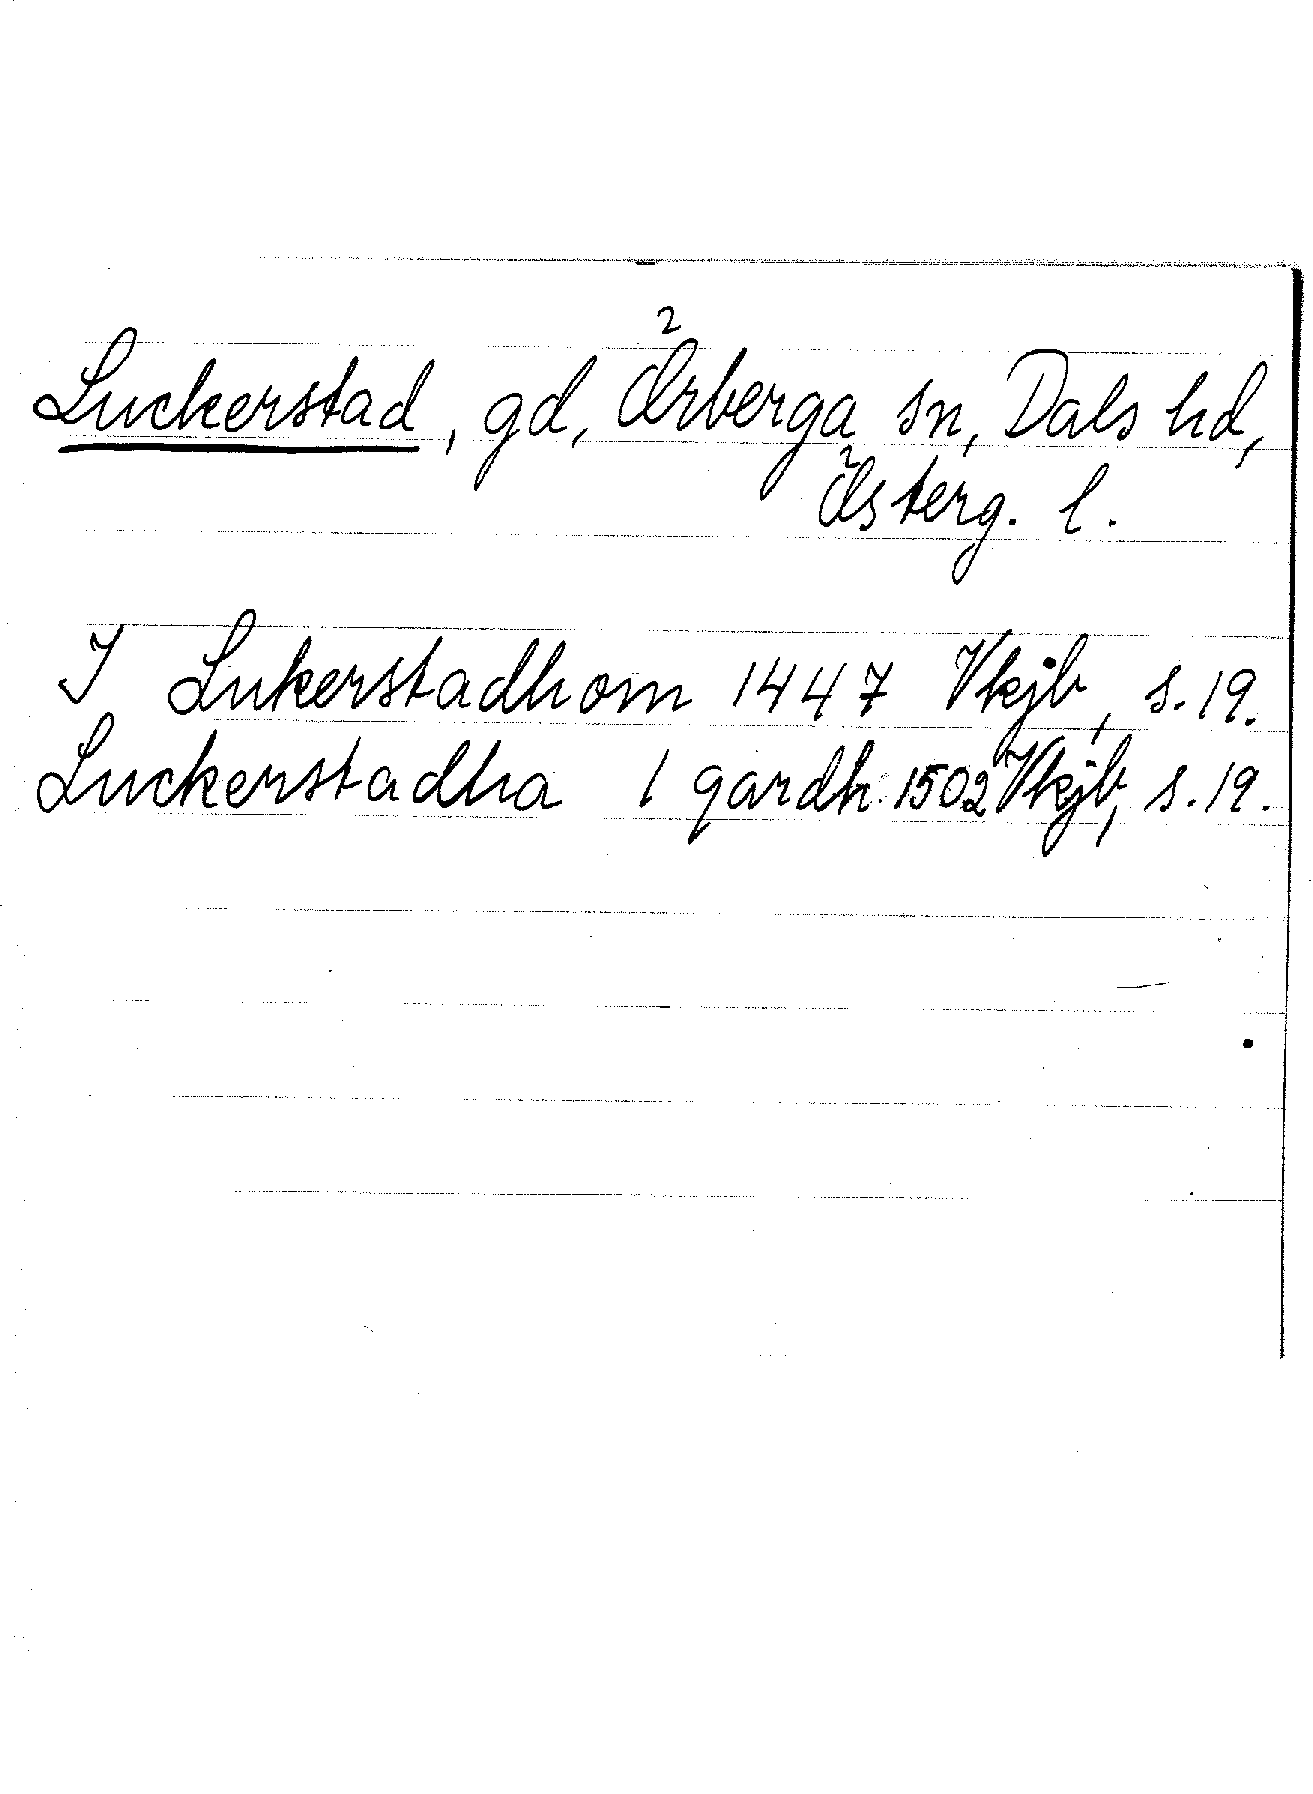 Luckerstad, gd, Örberga sn, Dals hd,
Österg. l.
I Lukerstadhom 1447 Vkjb, s. 19.
Luckerstadha 1 gardh 1502 Vkjb, s. 19.